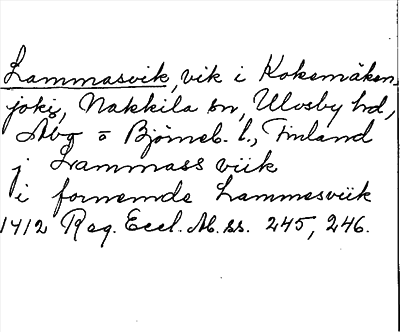 Lammasvik, vik i Kokemäken
joki, Nakkila sn, Ulvsby hd,
Åbo o Björneb. l., Finland
j Lammass viik
i fornemde Lammesviik
1412 Reg. Eccl. Ab. ss. 245, 246.